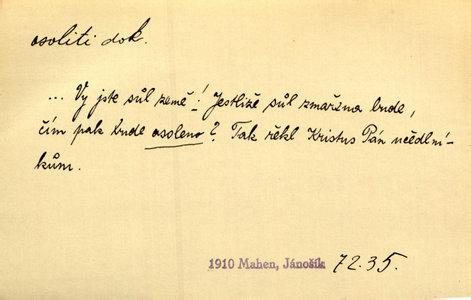 osoliti dok.
... Vy jste sůl země! Jestliže sůl zmařena bude,
čím pak bude osoleno? Tak řekl Kristus Pán učedlní-
kům.
1910 Mahen, Jánošík 72.35.